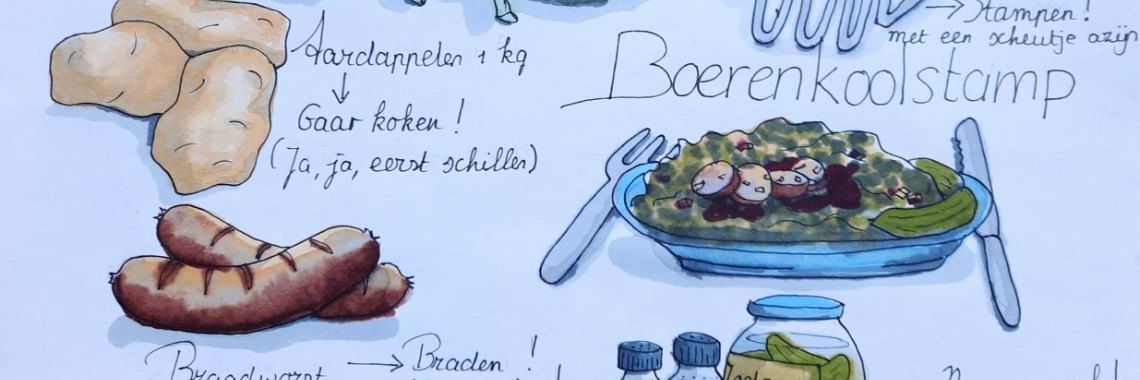 Aardappelen 1 kg
↓
Gaar koken!
(Ja, ja, eerst schillen)
→ Stampen!
met een scheutje azijn
Boerenkoolstamp
Braadworst → Braden!